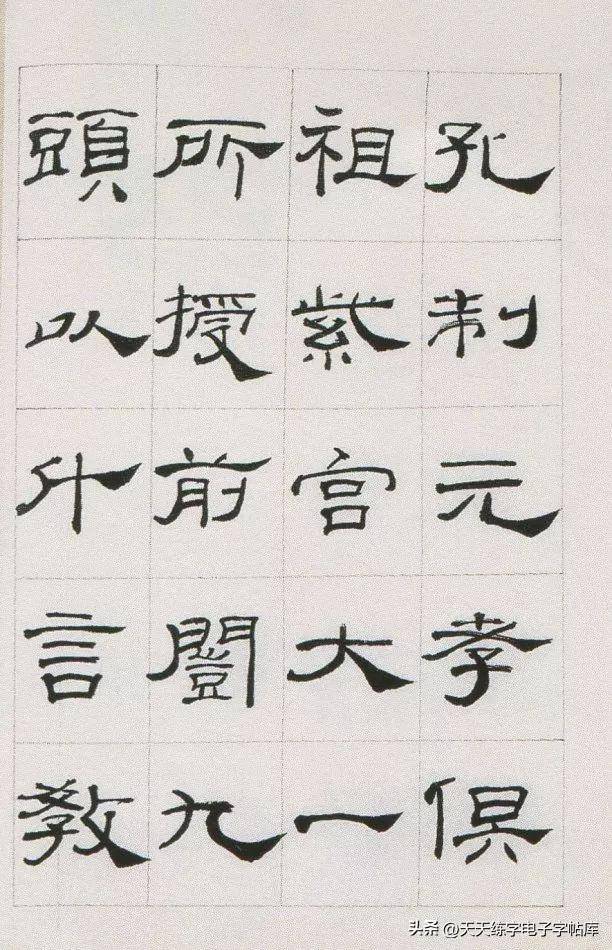 孔制元孝俱
祖紫宫大一
所授前闓九
頭以什言教
头条 @天天练字电子字帖库